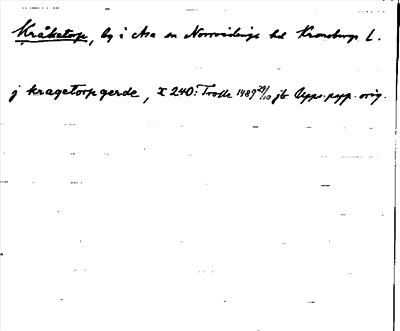 Kråketorp, by i Asa sn Norrvidinge hd Kronobergs L.
j kragetorp gerde, x 240: Trolle 1489 29/10 jb Upps. papp. orig.